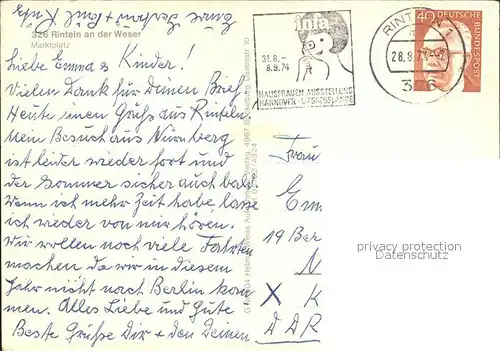 Eure Barbara + Fam. Küh
326 Rinteln an der Weser
Marktplatz
infa
31.8. –
8.9.74
HAUSFRAUEN AUSSTELLUNG
HANNOVER · MESSEGELÄNDE
RINTELN 1
28.8.74
326
40
DEUTSCHE
BUNDESPOST
Liebe Emma & Kinder!
Vielen Dank für Deinen Brief.
Heute einen Gruß aus Rinteln.
Mein Besuch aus Nürnberg
ist leider wieder fort und
der Sommer sicher auch bald.
Wenn ich mehr Zeit habe lasse
ich wieder von mir hören.
Wir wollten noch viele Fahrten
machen da wir in diesem
Jahr nicht nach Berlin kom
men. Alles Liebe und Gute
Beste Grüße Dir + den Deinen
Verlag, 4967 Bückeburg, Dammstr. 10
Frau
Em
19 Ber
N
X K
DDR
privacy protection
Datenschutz